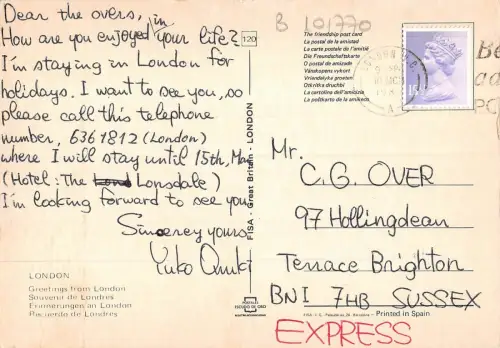 Dear the overs,
How are you enjoyed in your life?
I'm staying in London for
holidays. I want to see you, so
please call this telephone
number, 636 1812 (London)
where I will stay until 15th, Mar
(Hotel: The Lond Lonsdale)
I'm looking forward to see you
Sincerey yours,
Yuko Onuki
LONDON
Greetings from London
Souvenir de Londres
Erinnerungen an London
Recuerdo de Londres
120
FISA - Great Britain - LONDON
B 101770
The friendship post card
La postal de la amistad
La carte postale de l'amitié
Die Freundschaftskarte
O postal de amizade
Vänskapens vykort
Vriendelyke groeten
La cartolina dell'amicizia
Be
PO
A
Mr.
C.G. OVER
97 Hollingdean
Terrace Brighton
BN1 7HB SUSSEX
Printed in Spain
EXPRESS